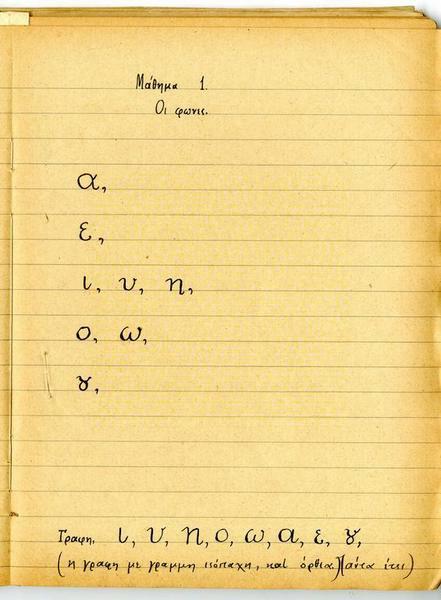 Μάθημα 1.
Οι φωνες.
α,
ε,
ι, υ, η,
ο, ω,
ȣ,
Γραφη, ι, υ, η, ο, ω, α, ε, ȣ,
(η γραφη με γραμμη ισόπαχη, και όρθια)